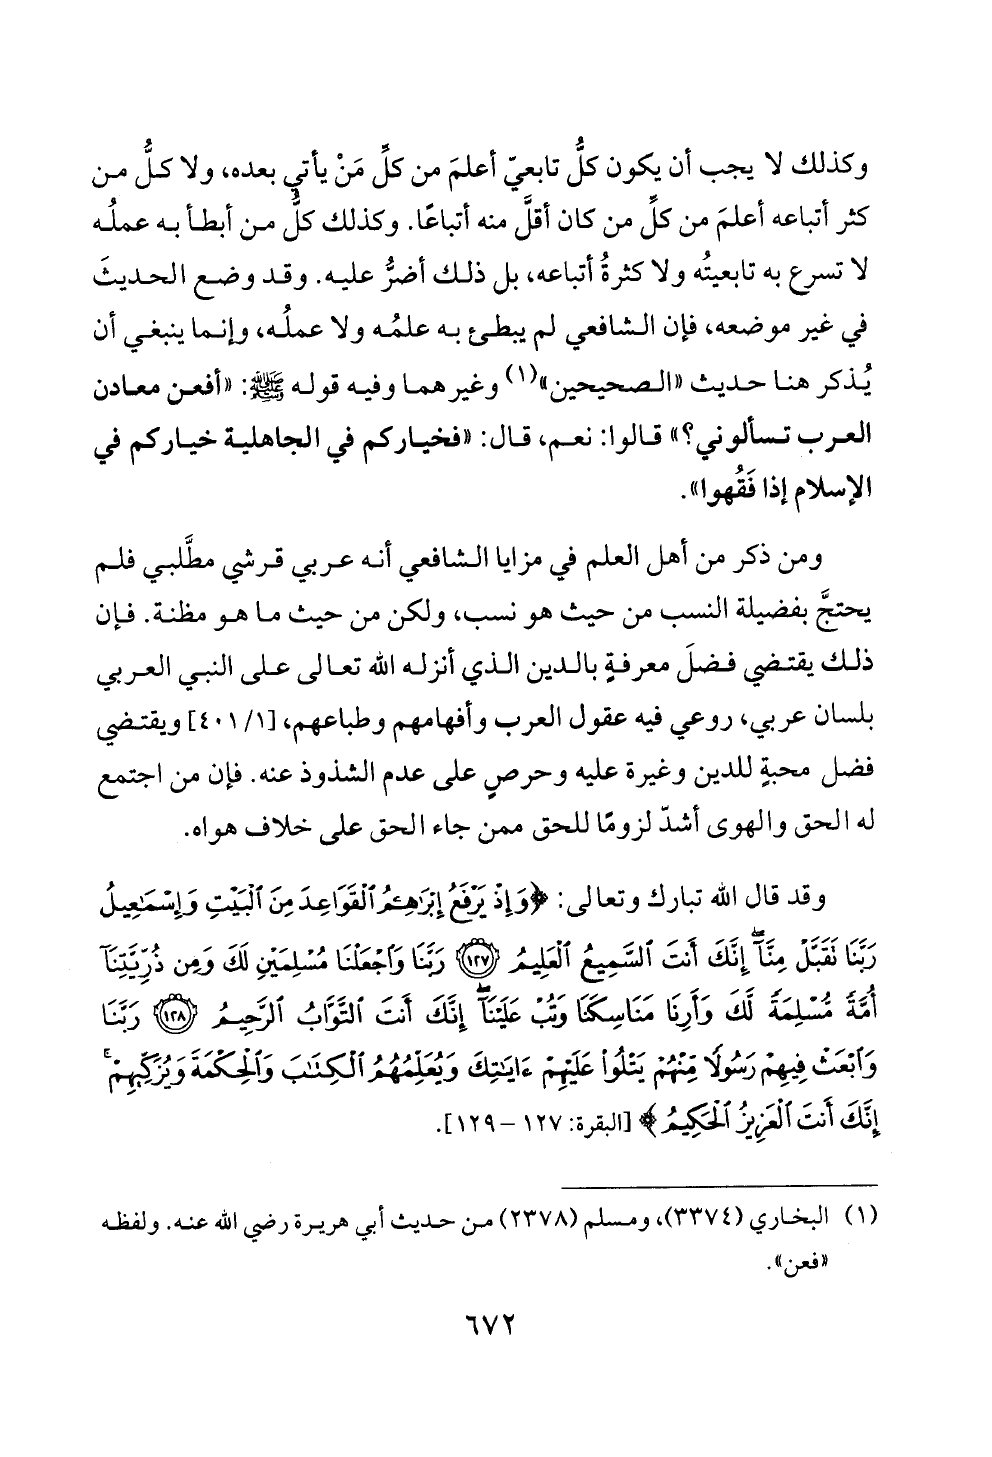 وكذلك لا يجب أن يكون كلُّ تابعيّ أعلمَ من كلِّ مَنْ يأتي بعده، ولا كلُّ من
كثر أتباعه أعلمَ من كلِّ من كان أقلَّ منه أتباعًا. وكذلك كلُّ من أبطأ به عملُه
لا تسرع به تابعيتُه ولا كثرةُ أتباعه، بل ذلك أضرُّ عليه. وقد وضع الحديثَ
في غير موضعه، فإن الشافعي لم يبطئ به علمُه ولا عملُه، وإنما ينبغي أن
يُذكر هنا حديث «الصحيحين»(١) وغيرهما وفيه قوله ﷺ: «أفعن معادن
العرب تسألوني؟» قالوا: نعم، قال: «فخياركم في الجاهلية خياركم في
الإسلام إذا فَقُهوا».
ومن ذكر من أهل العلم في مزايا الشافعي أنه عربي قرشي مطَّلبي فلم
يحتجَّ بفضيلة النسب من حيث هو نسب، ولكن من حيث ما هو مظنة. فإن
ذلك يقتضي فضلَ معرفةٍ بالدين الذي أنزله الله تعالى على النبي العربي
بلسان عربي، روعي فيه عقول العرب وأفهامهم وطباعهم، [٤٠١/١] ويقتضي
فضل محبةٍ للدين وغيرة عليه وحرصٍ على عدم الشذوذ عنه. فإن من اجتمع
له الحق والهوى أشدّ لزومًا للحق ممن جاء الحق على خلاف هواه.
وقد قال الله تبارك وتعالى: ﴿وَإِذْ يَرْفَعُ إِبْرَاهِـۧمُ الْقَوَاعِدَ مِنَ الْبَيْتِ وَإِسْمَاعِيلُ
رَبَّنَا تَقَبَّلْ مِنَّآ إِنَّكَ أَنتَ السَّمِيعُ الْعَلِيمُ ﴿١٢٧﴾ رَبَّنَا وَاجْعَلْنَا مُسْلِمَيْنِ لَكَ وَمِن ذُرِّيَّتِنَآ
أُمَّةً مُّسْلِمَةً لَّكَ وَأَرِنَا مَنَاسِكَنَا وَتُبْ عَلَيْنَآ إِنَّكَ أَنتَ التَّوَّابُ الرَّحِيمُ ﴿١٢٨﴾ رَبَّنَا
وَابْعَثْ فِيهِمْ رَسُولًا مِّنْهُمْ يَتْلُوا عَلَيْهِمْ ءَايَاتِكَ وَيُعَلِّمُهُمُ الْكِتَابَ وَالْحِكْمَةَ وَيُزَكِّيهِمْ
إِنَّكَ أَنتَ الْعَزِيزُ الْحَكِيمُ﴾ [البقرة: ١٢٧ – ١٢٩].
(١) البخاري (٣٣٧٤)، ومسلم (٢٣٧٨) من حديث أبي هريرة رضي الله عنه. ولفظه
«فعن».
٦٧٢